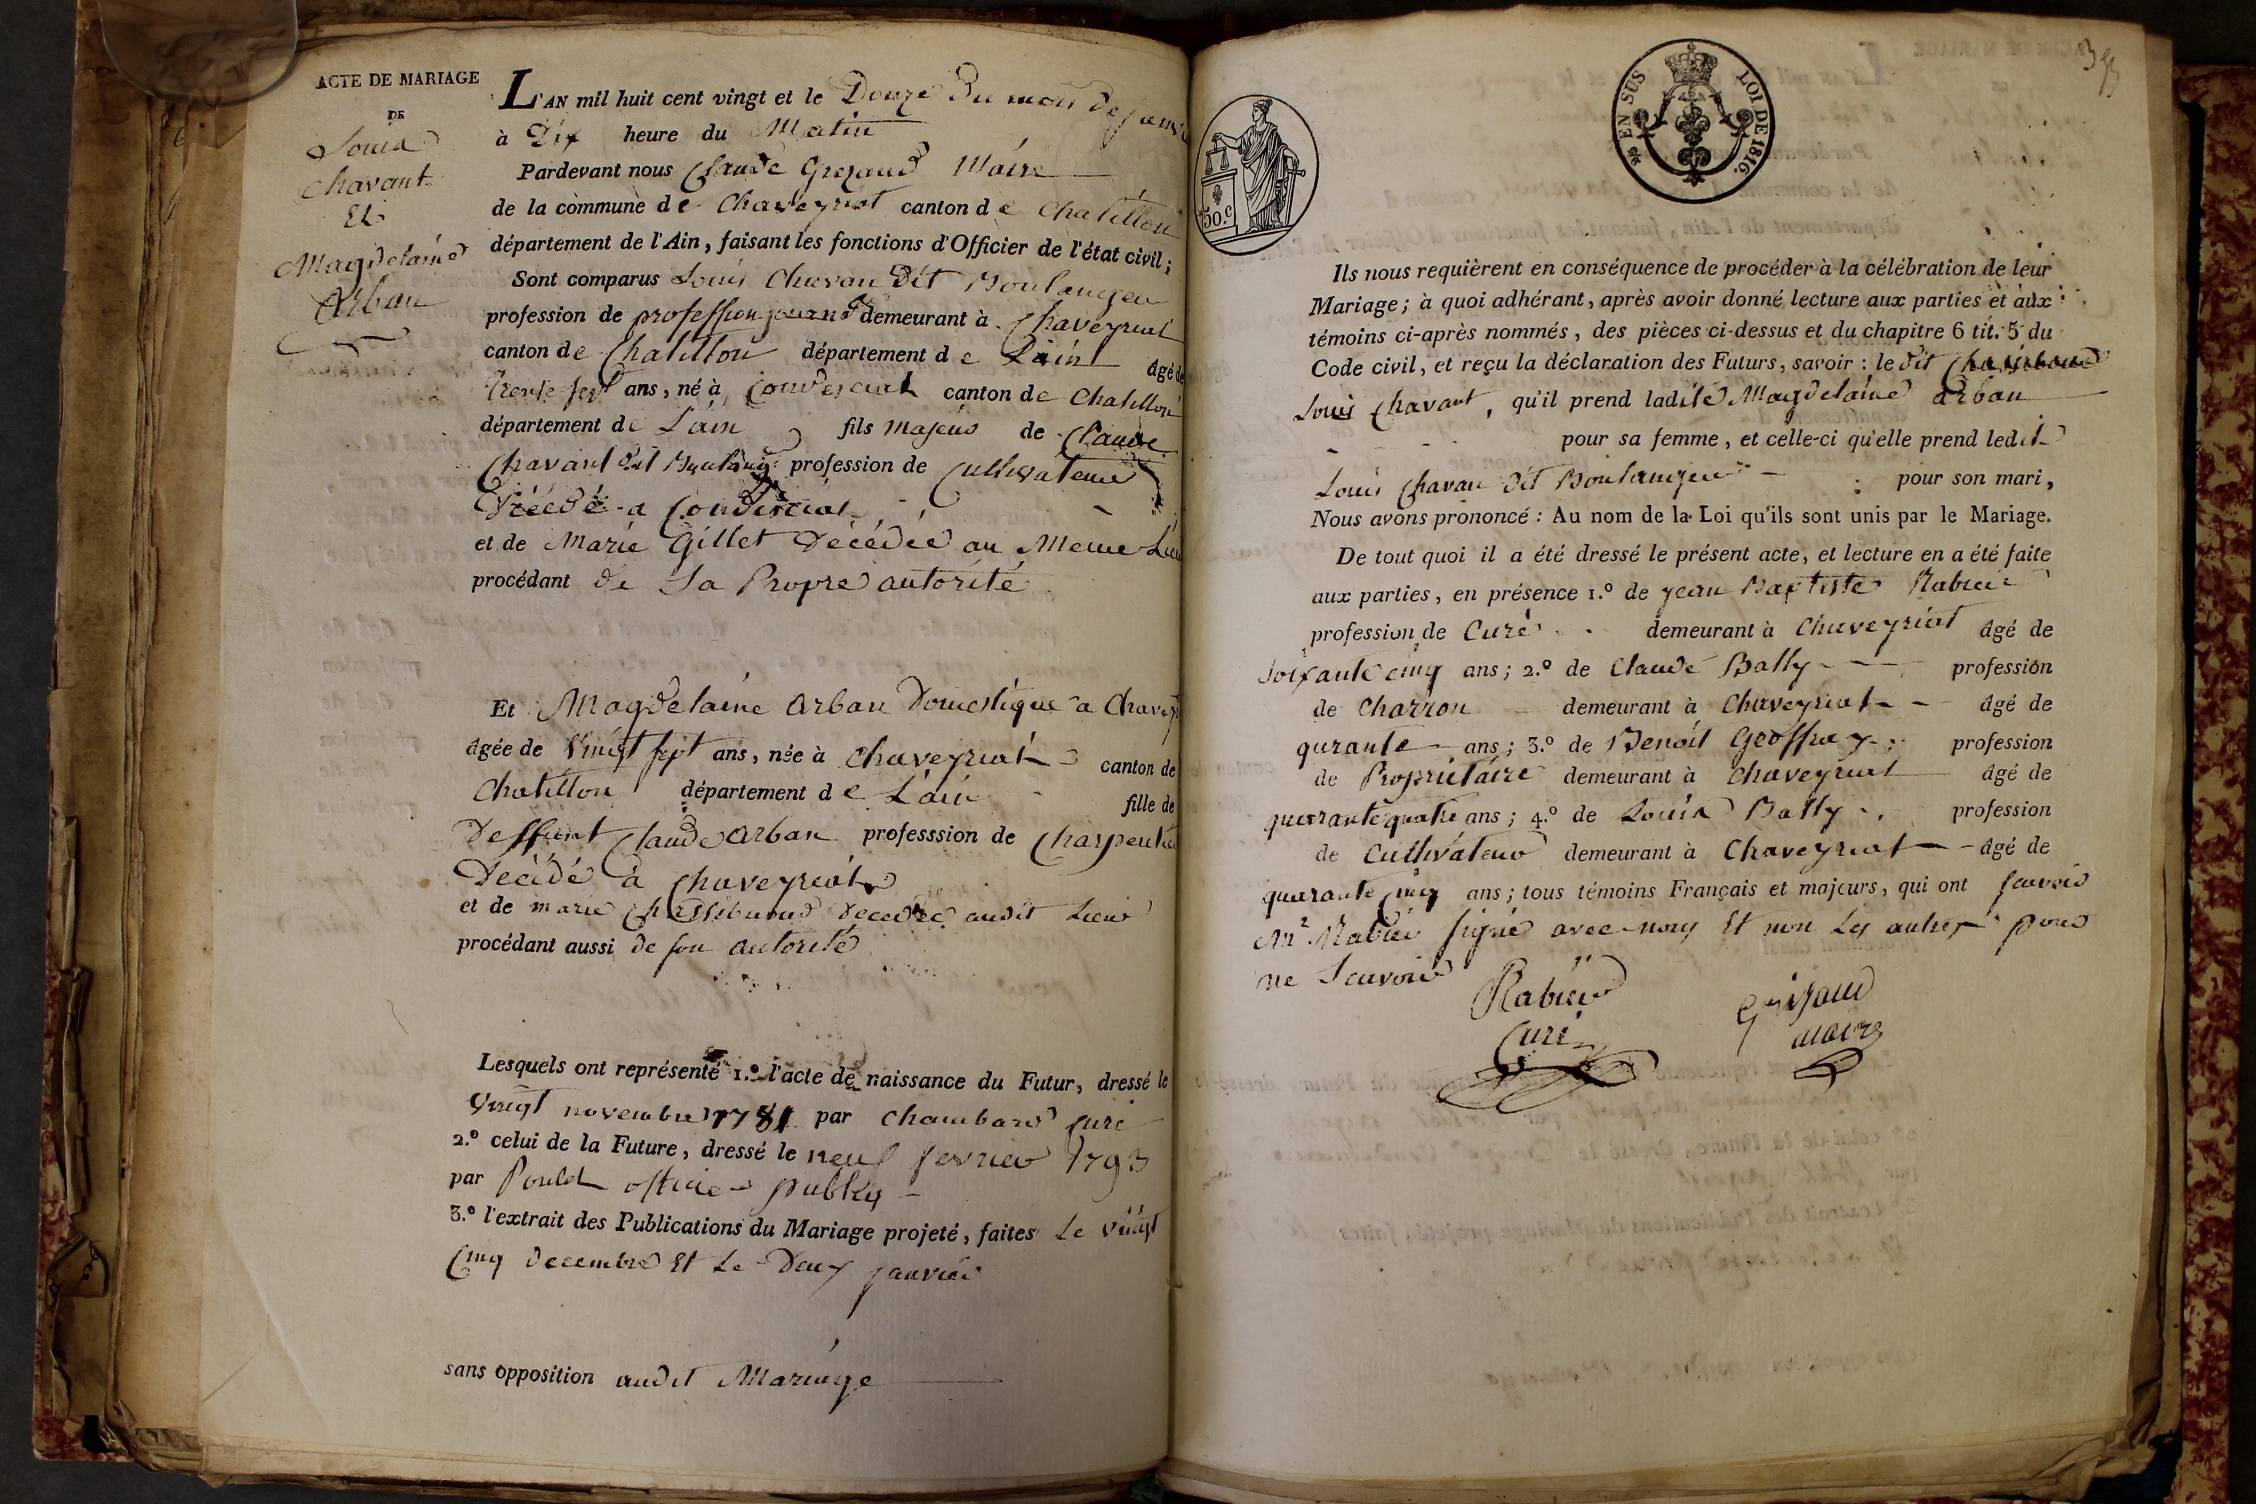 ACTE DE MARIAGE
DE
Louis
Chavant
Et
Magdelaine
Arban
L'AN mil huit cent vingt et le Douze du mois de janv
à Dix heure du Matin
Pardevant nous Claude Grezaud Maire
de la commune de Chaveyriat canton de Chatillon
département de l'Ain, faisant les fonctions d'Officier de l'état civil;
Sont comparus Louis Chavan dit Boulanger
profession de profession journ demeurant à Chaveyriat
canton de Chatillon département de L'ain âgé de
Trente sept ans, né à Condeissiat canton de Chatillon
département de L'ain fils majeur de Claude
Chavant dit profession de Cultivateur
Décédé a Condeissiat
et de Marie Gillet Décédée au Meme Lieu
procédant de Sa Propre autorité
Et Magdelaine Arban Domestique a Chavey
âgée de Vingt sept ans, née à Chaveyriat canton de
Chatillon département de L'ain fille de
Deffunt Claude Arban professsion de Charpentie
Décédé à Chaveyriat
et de marie décédée audit Lieu
procédant aussi de son autorité
Lesquels ont représenté 1.º l'acte de naissance du Futur, dressé le
Vingt novembre 1781 par Chambard curé
2.º celui de la Future, dressé le neuf fevrier 1793
par Poulet officier public
3.º l'extrait des Publications du Mariage projeté, faites Le vingt
Cinq decembre Et Le Deux janvier
sans opposition audit Mariage
EN SUS LOI DE 1816.
50.c
Ils nous requièrent en conséquence de procéder à la célébration de leur
Mariage; à quoi adhérant, après avoir donné lecture aux parties et aux
témoins ci-après nommés, des pièces ci-dessus et du chapitre 6 tit. 5 du
Code civil, et reçu la déclaration des Futurs, savoir : le dit
Louis Chavant, qu'il prend ladite Magdelaine arban
pour sa femme, et celle-ci qu'elle prend ledit
Louis Chavan dit Boulanger pour son mari,
Nous avons prononcé : Au nom de la Loi qu'ils sont unis par le Mariage.
De tout quoi il a été dressé le présent acte, et lecture en a été faite
aux parties, en présence 1.º de jean Baptiste Rabuer
profession de Curé demeurant à Chaveyriat âgé de
soixante cinq ans; 2.º de Claude Bally profession
de Charron demeurant à Chaveyriat âgé de
qurante ans; 3.º de Benoit Geoffray profession
de Propriétaire demeurant à Chaveyriat âgé de
quarante quatre ans; 4.º de Louis Bally profession
de Cultivateur demeurant à Chaveyriat âgé de
quarante cinq ans; tous témoins Français et majeurs, qui ont sçavoir
Mr Rabuer signé avec nous Et non Les autres pour
ne Scavoir
Rabuer
Curé
Grezaud
maire